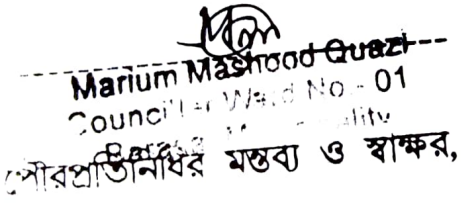 Marium Mashood Quazi
Councillor Ward No - 01
পৌরপ্রতিনিধির মন্তব্য ও স্বাক্ষর,